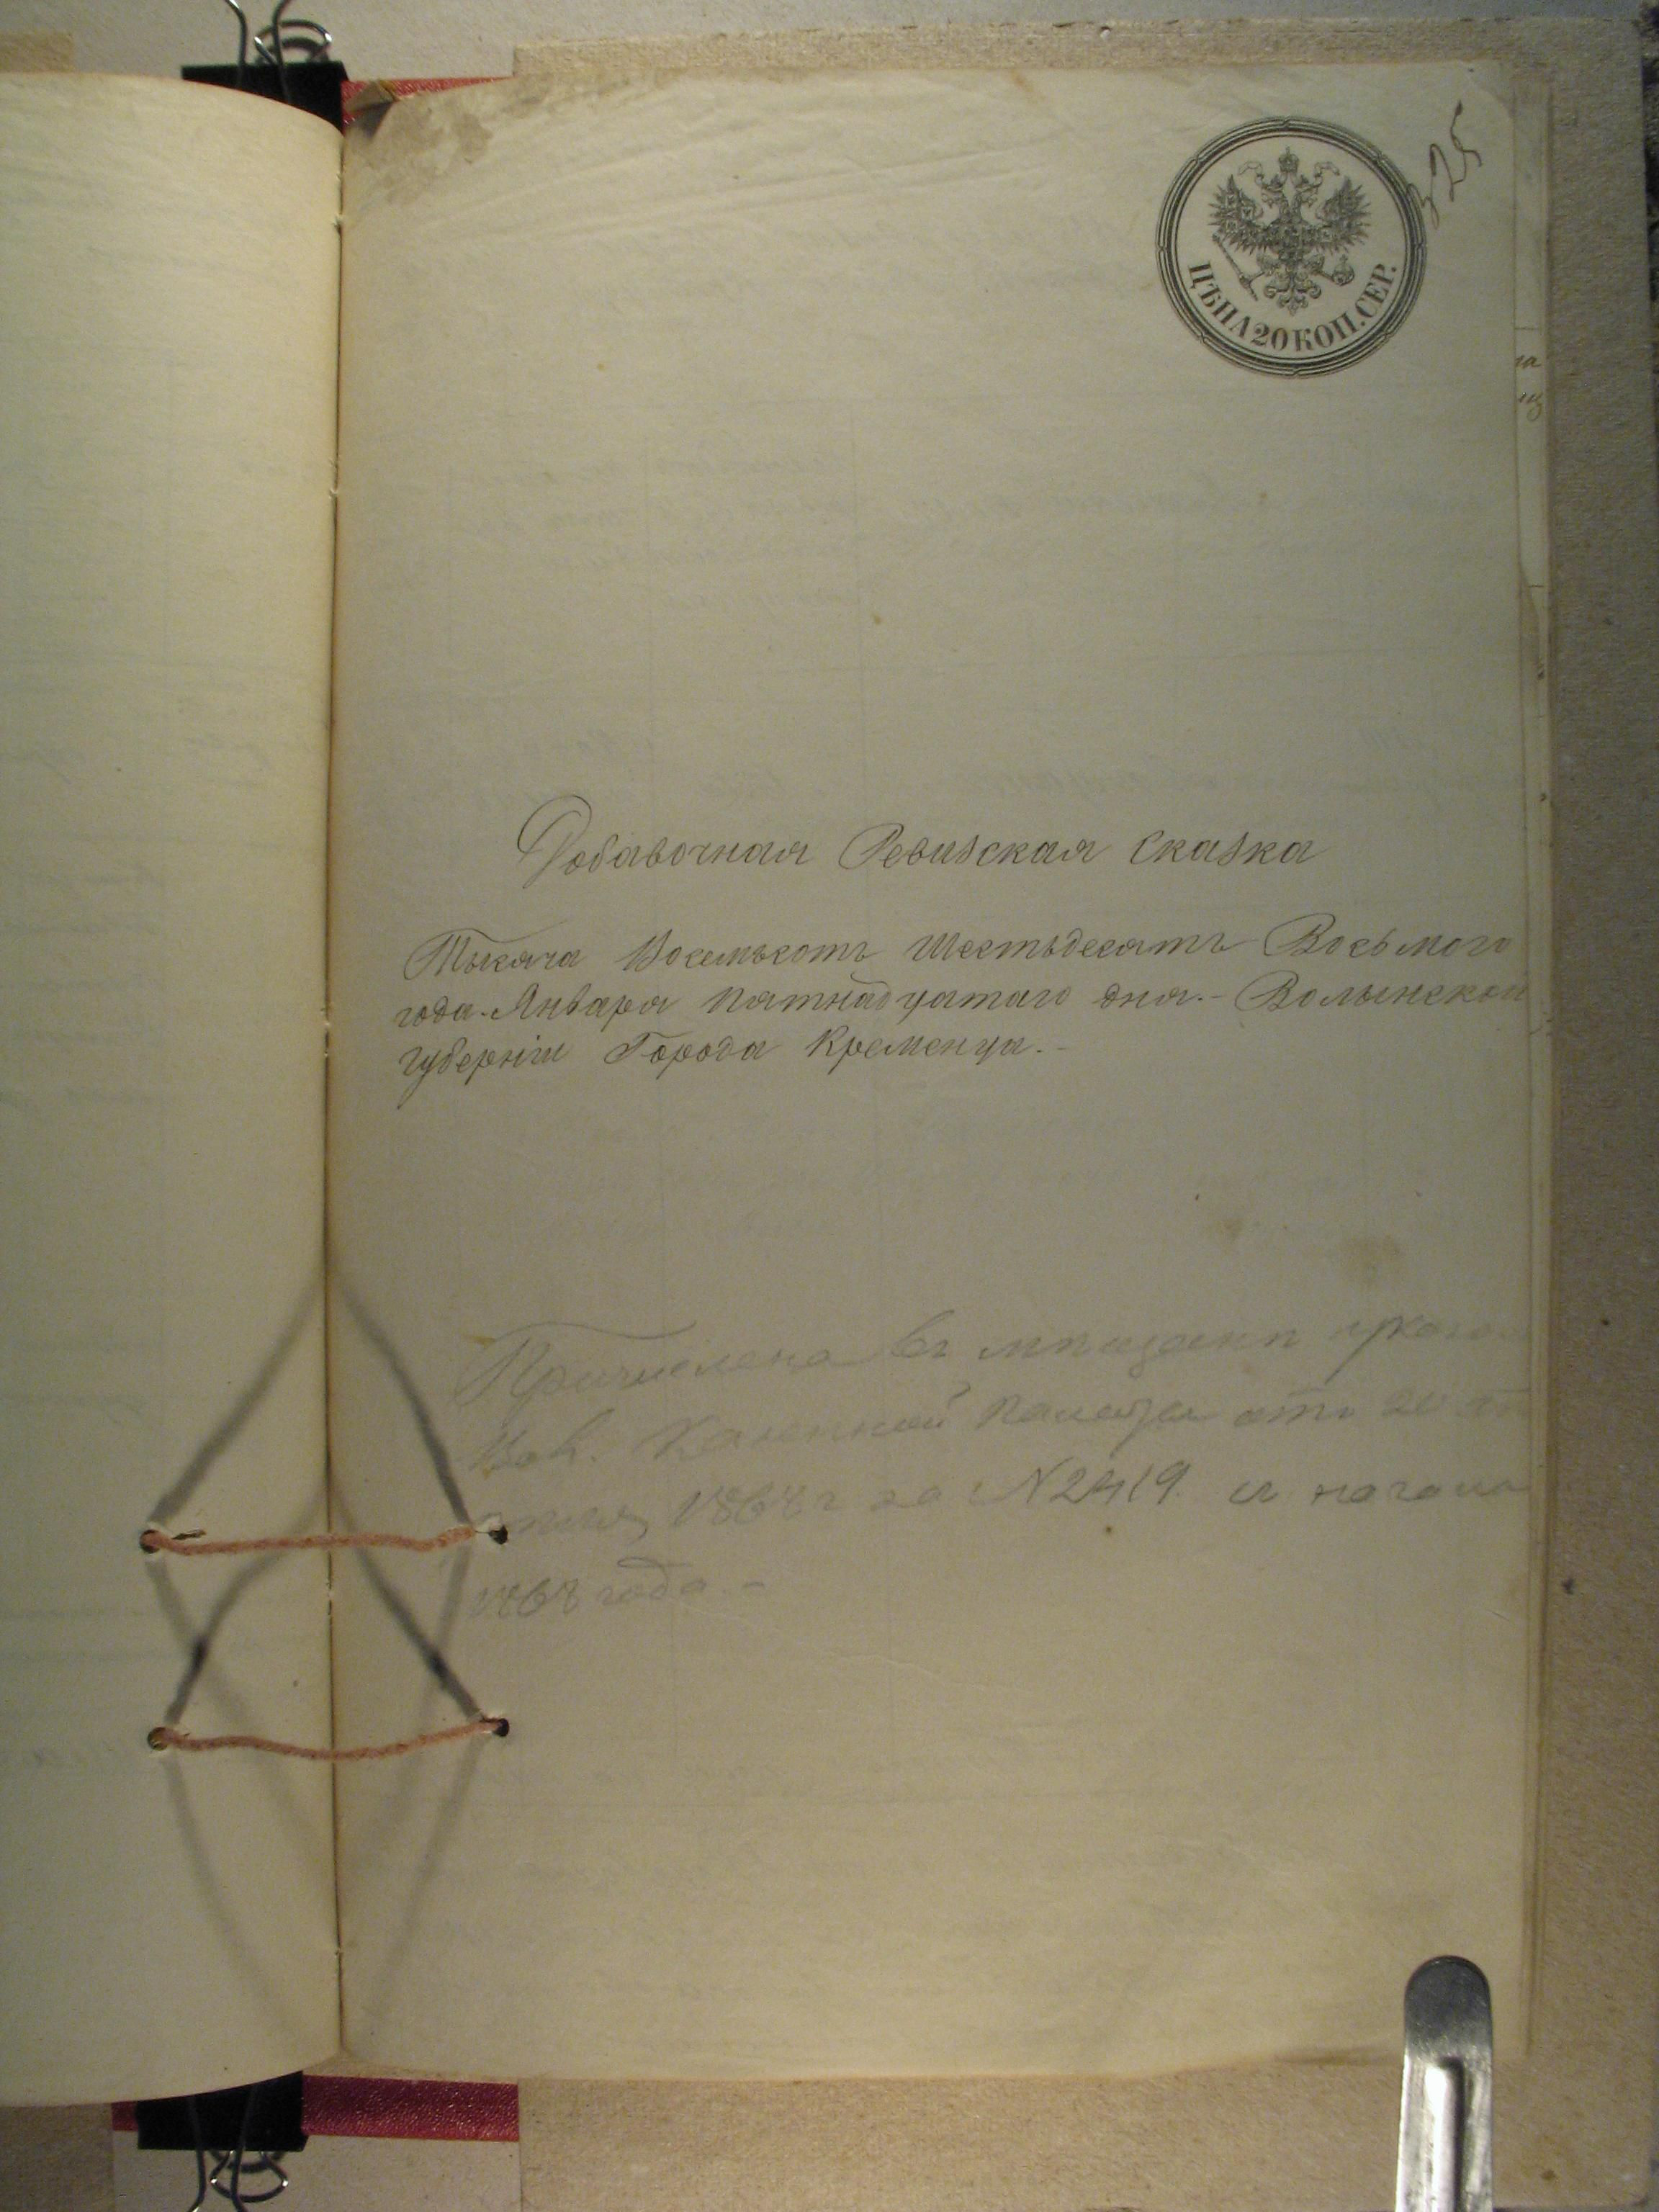 325
ЦѢНА 20 КОП. СЕР.
Добавочная Ревизская Сказка
Тысяча Восемьсотъ Шестьдесятъ Восьмого
года. Января пятнадцатаго дня.- Волынской
губерніи Города Кременца.-
Причислена въ мѣщани
Вол. Казенной Палаты отъ 20
186 г за N 2419. съ начала
186 года.-